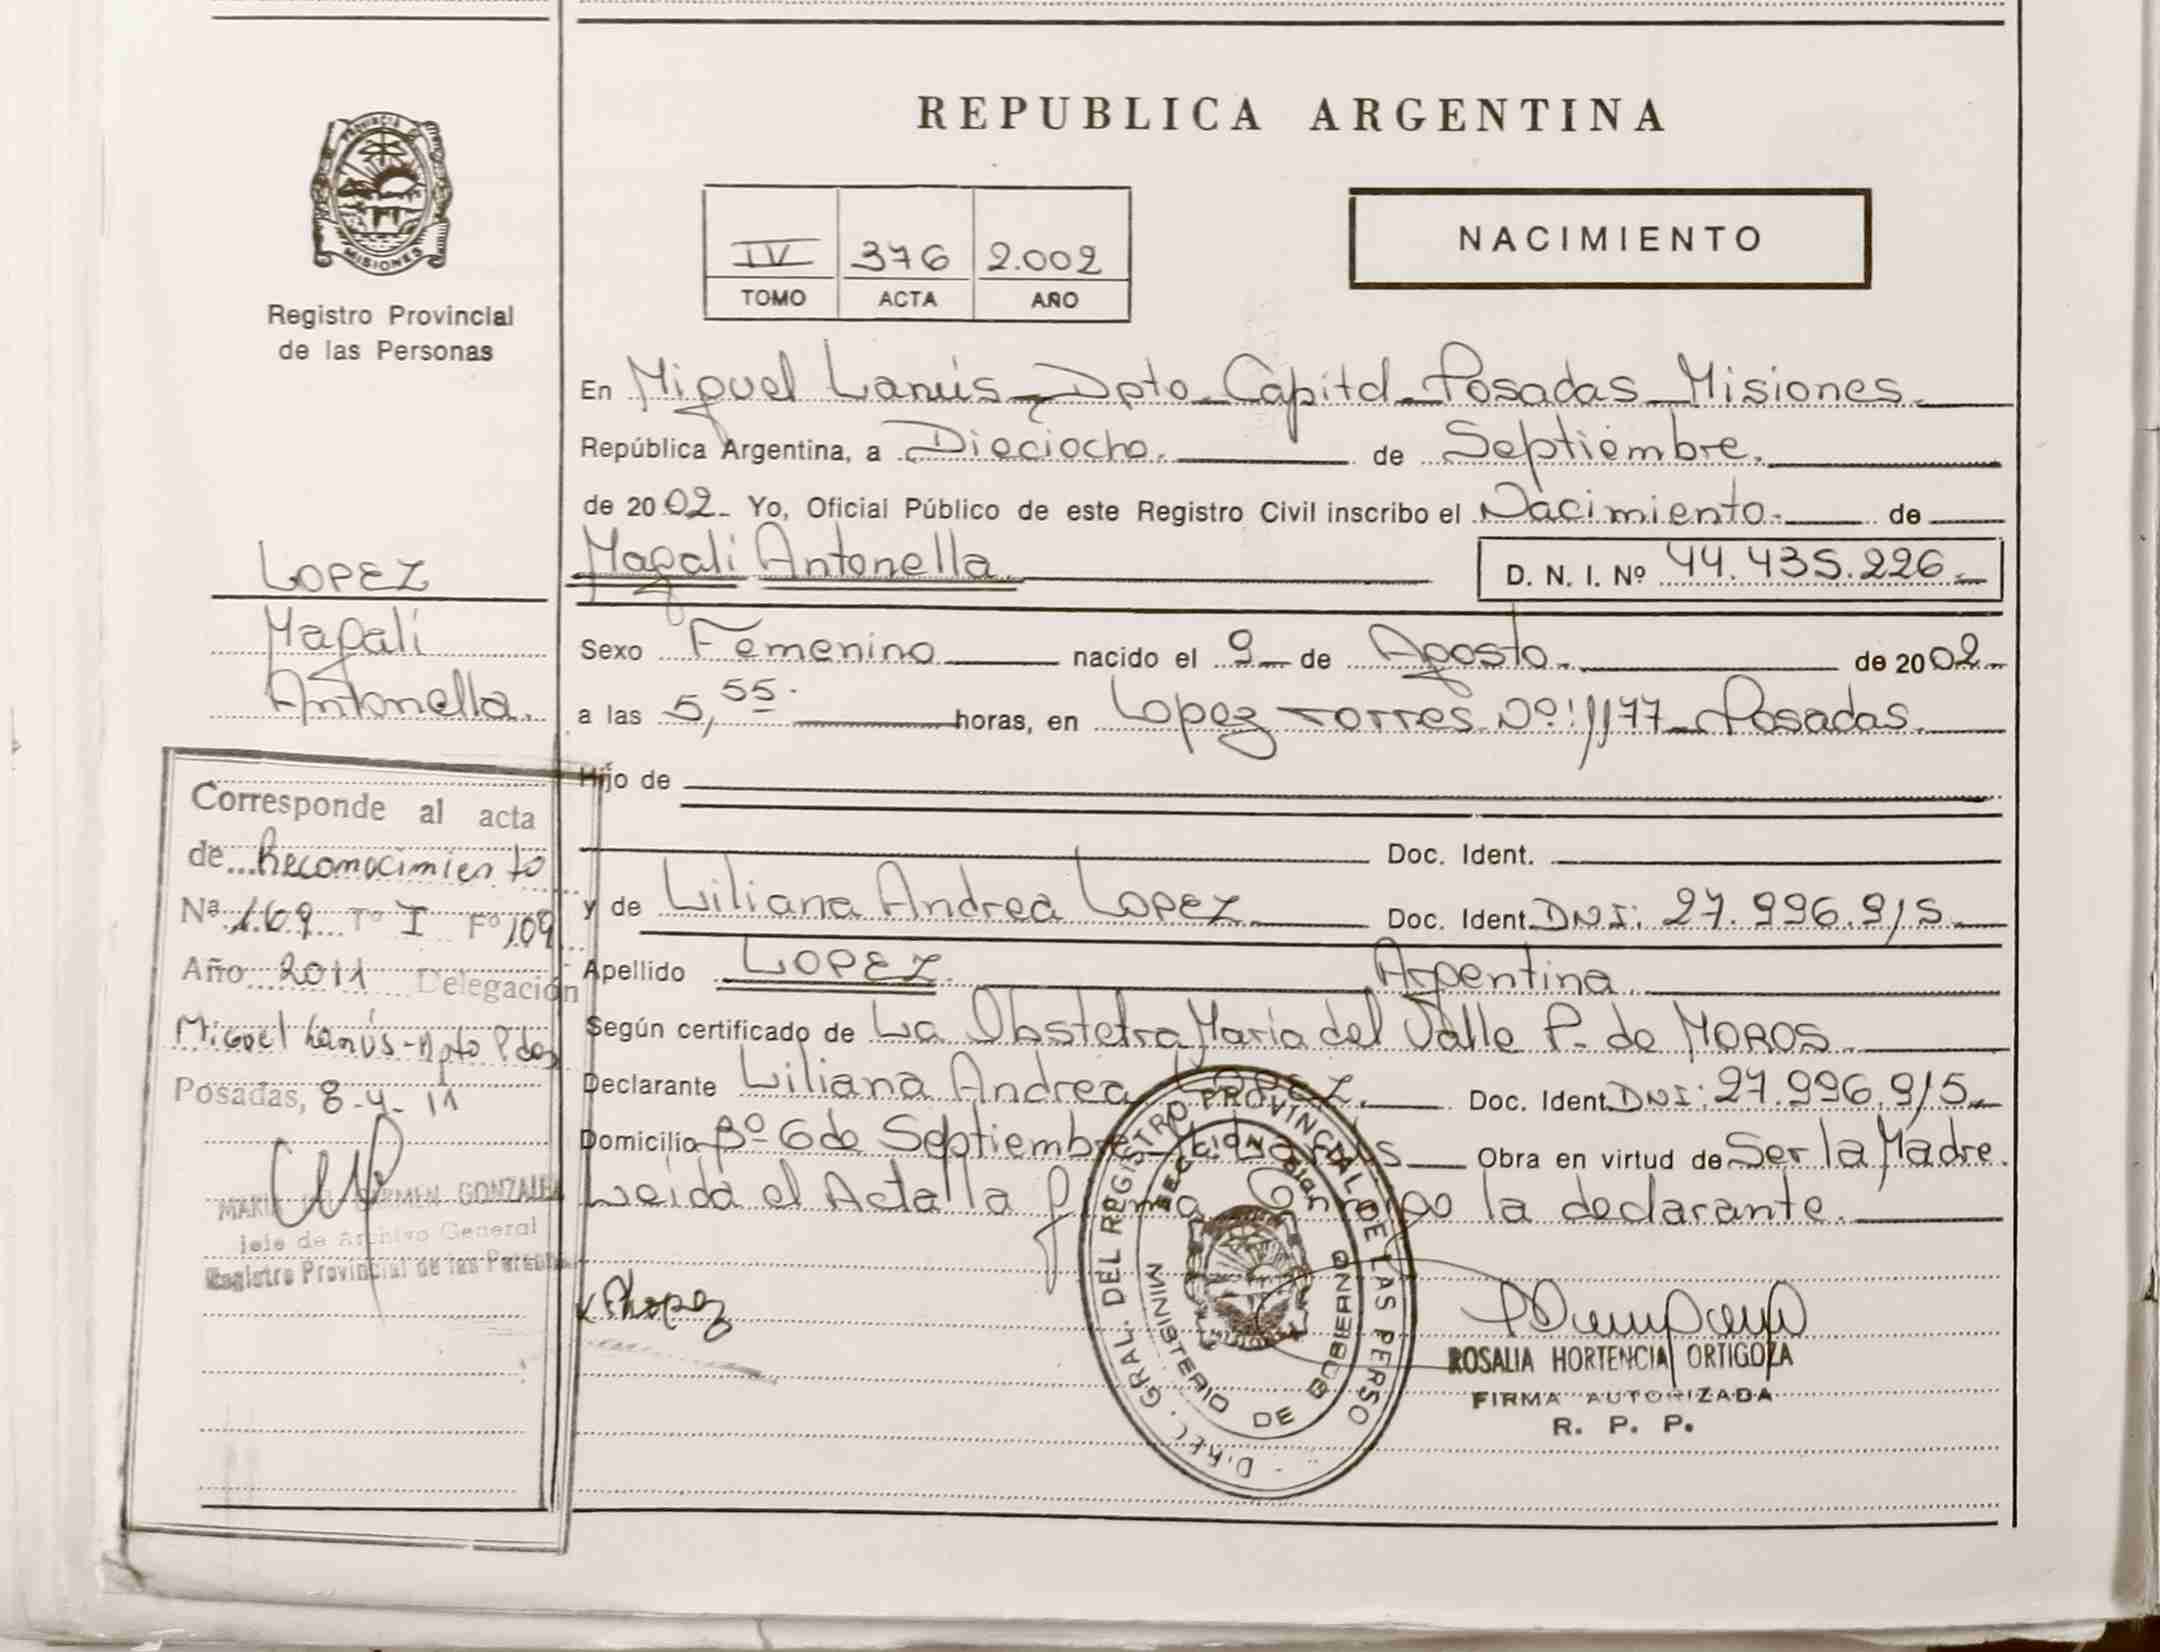 REPUBLICA ARGENTINA
PROVINCIA DE
MISIONES
Registro Provincial
de las Personas
IV 376 2.002
TOMO ACTA AÑO
NACIMIENTO
En Miguel Lanús - Dpto Capital - Posadas - Misiones.
República Argentina, a Dieciocho. de Septiembre.
de 2002 - Yo, Oficial Público de este Registro Civil inscribo el Nacimiento. de
Magali Antonella D. N. I. Nº 44.435.226.
Sexo Femenino nacido el 9 de Agosto. de 2002
a las 5,55. horas, en Lopez Torres Nº: 1177 - Posadas.
Hijo de
Doc. Ident.
y de Liliana Andrea LOPEZ Doc. Ident. DNI: 27.996.915
Apellido LOPEZ. Argentina.
Según certificado de La Obstetra Maria del Valle P. de MOROS.
Declarante Liliana Andrea LOPEZ. Doc. Ident. DNI: 27.996.915
Domicilio Bº 6 de Septiembre Obra en virtud de Ser la Madre.
Leida el Acta la firma Conmigo la declarante.
LOPEZ
Magali
Antonella.
Corresponde al acta
de Reconocimiento
Nª 169 Tº I Fº 109
Año 2011 Delegación
Miguel Lanús - Dpto Pdas
Posadas, 8-4-11
MARIA DEL CARMEN GONZALEZ
Jefe de Archivo General
Registro Provincial de las Personas
Lopez
DIREC. GRAL. DEL REGISTRO PROVINCIAL DE LAS PERSO
MINISTERIO DE GOBIERNO
MISIONES
ROSALIA HORTENCIA ORTIGOZA
FIRMA AUTORIZADA
R. P. P.